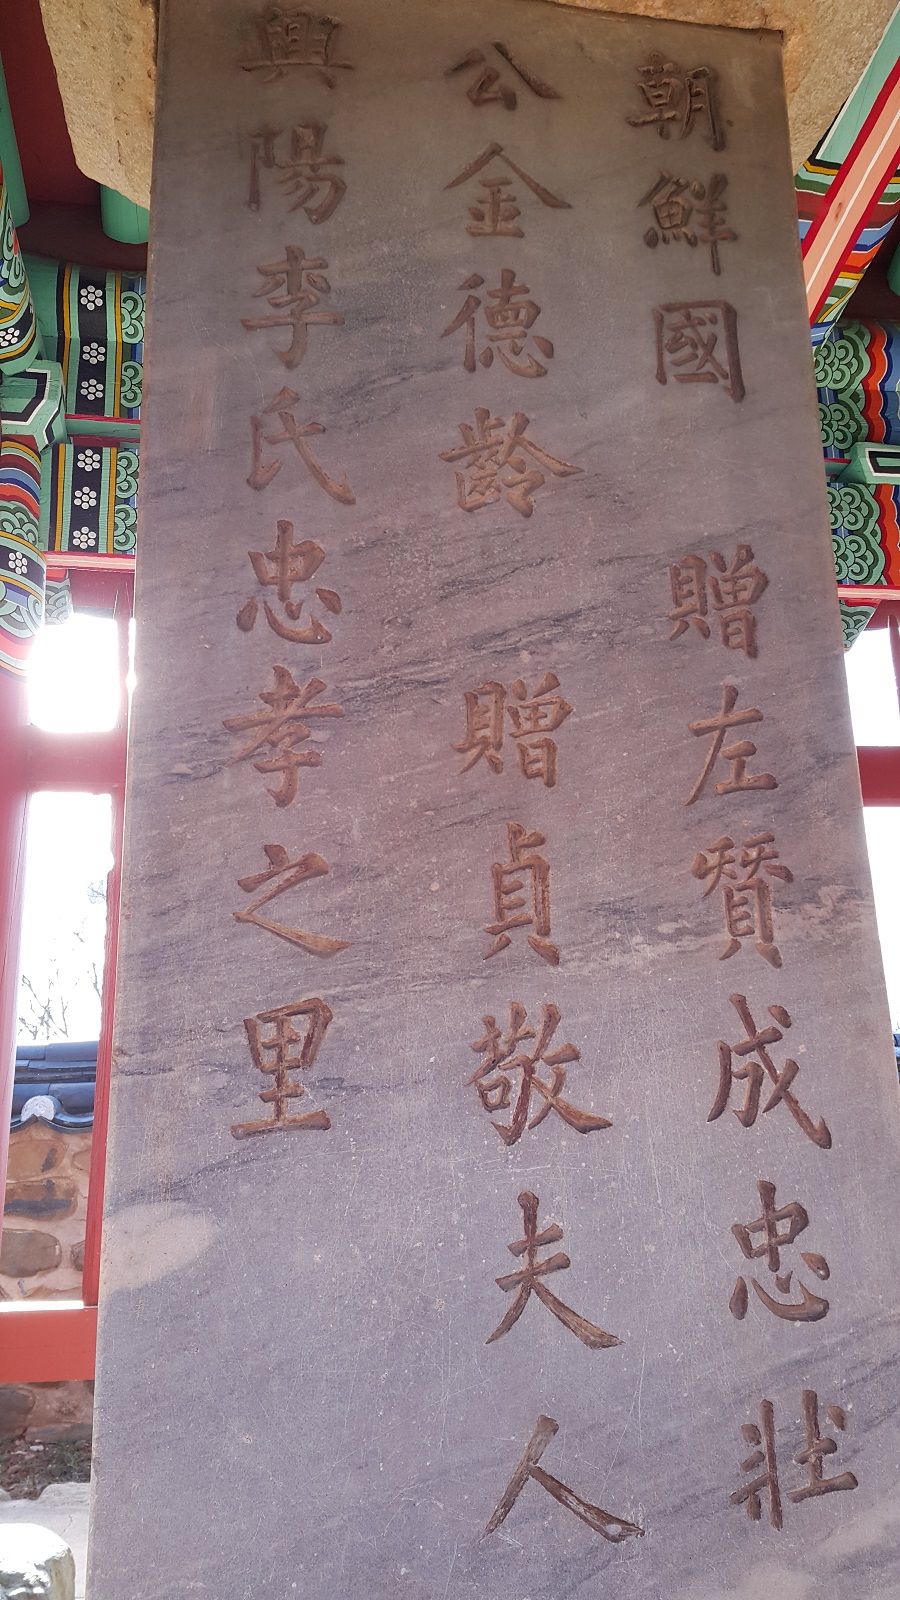 朝鮮國 贈左贊成忠壯
公金德齡 贈貞敬夫人
興陽李氏忠孝之里